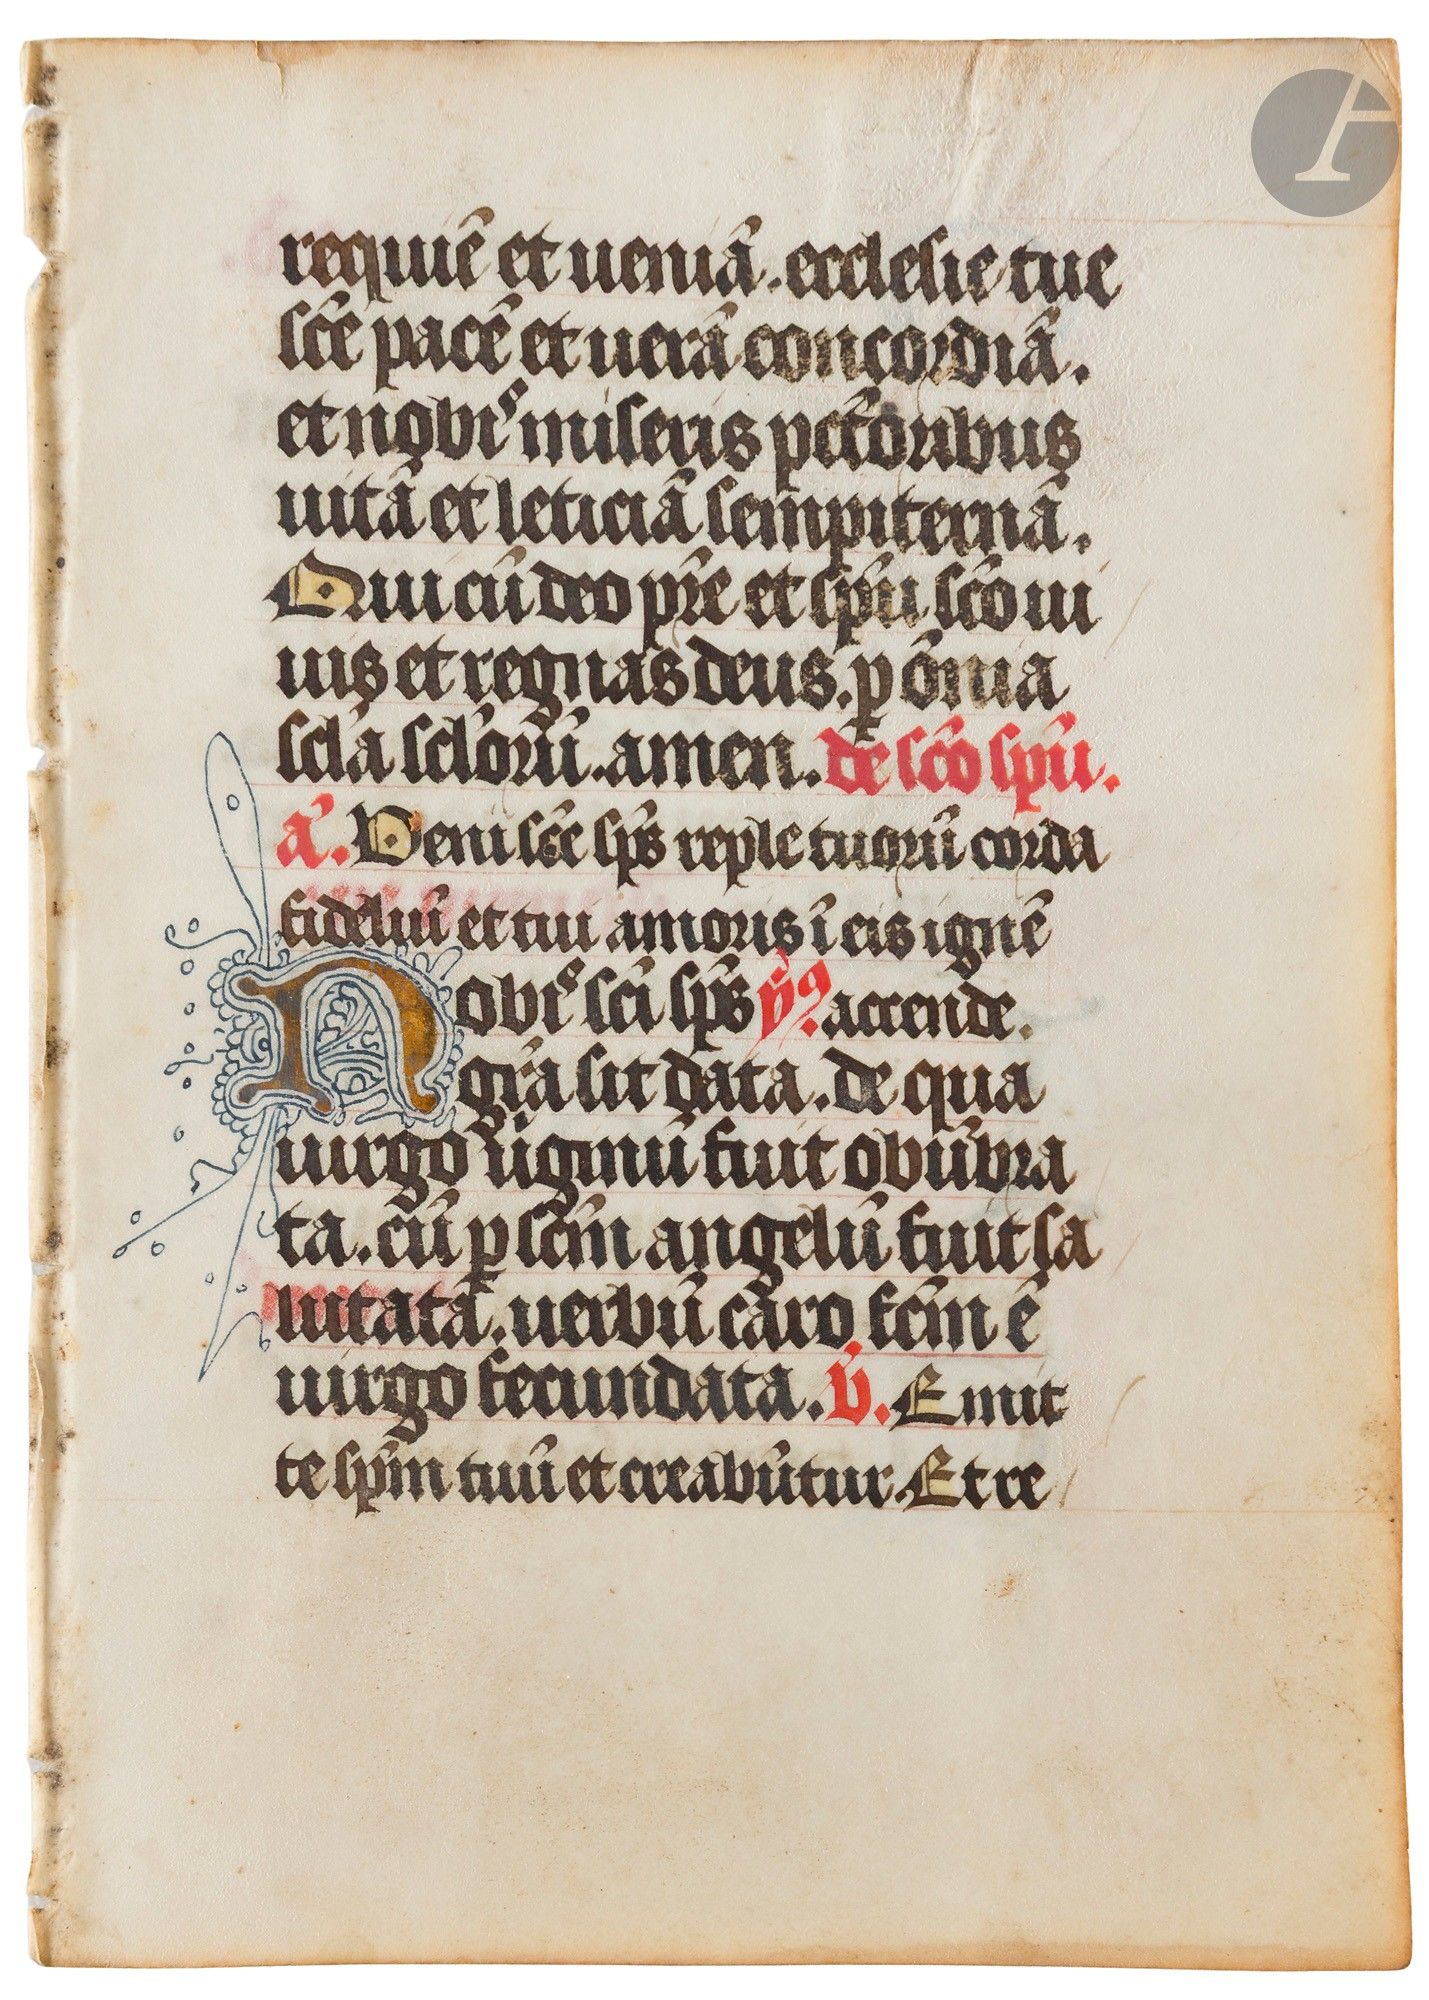 requiē et ueniā. ecclesie tue
scē pacē et uerā concordiā.
et nobis miseris pctōribus
uitā et leticiā sempiternā.
Qui cū deo pr̄e et spū scō ui
uis et regnas deus. p om̄ia
scl̄a scl̄orū. amen. de scō spū.
a. Veni scē sp̄s reple tuorū corda
fideliū et tui amoris ī eis ignē
Nobis sci sp̄s v9 accende.
gr̄a sit data. de qua
uirgo uirginū fuit obūbra
ta. cū p scm̄ angelū fuit sa
lutata. uerbū caro fcm̄ ē
uirgo fecundata. v̄. Emit
te spm̄ tuū et creabūtur. Et re